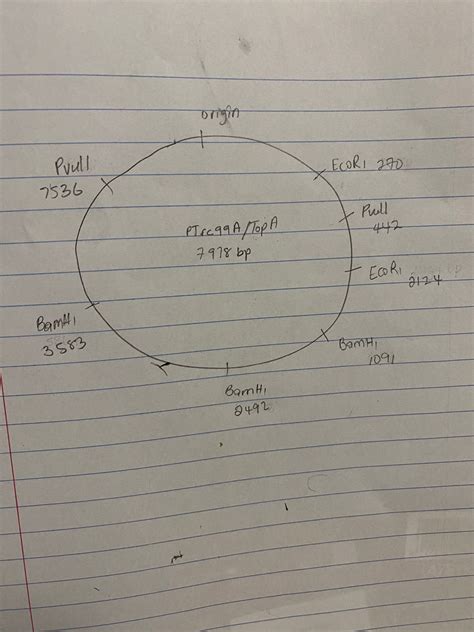 origin
EcoR1 270
Pull
442
EcoR1
2124
BamH1
1091
BamH1
2492
BamH1
3583
Pvull
7536
PTrc99A/TopA
7978 bp